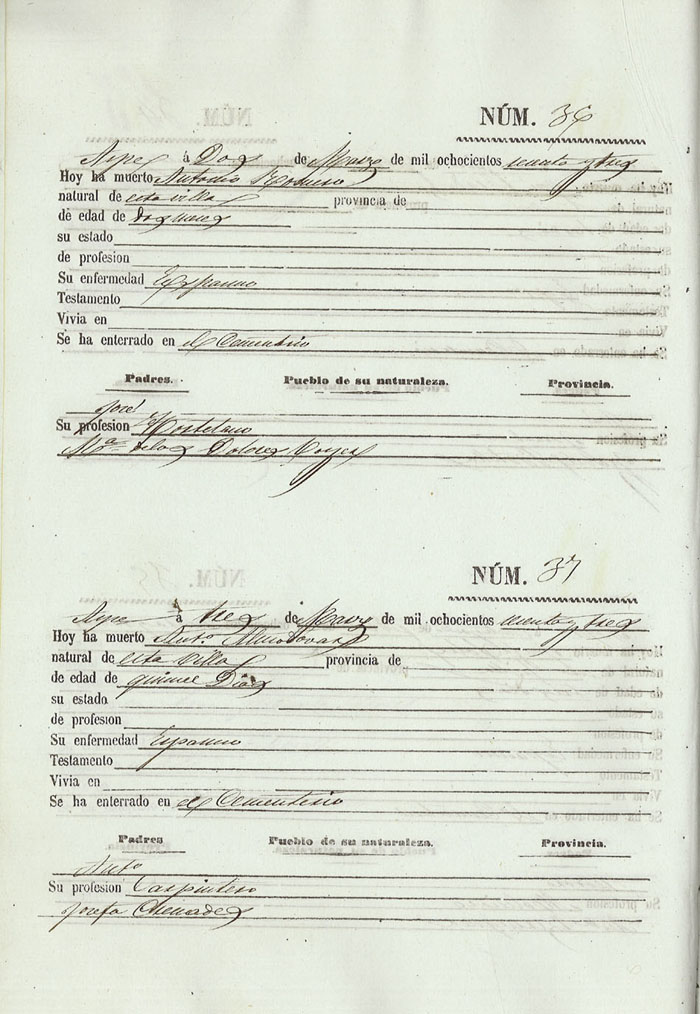 NÚM. 36
Aspe á Dos de Marzo de mil ochocientos y tres
Hoy ha muerto Antonio Romero
natural de esta villa provincia de
de edad de dos meses
su estado
de profesion
Su enfermedad Espasmo
Testamento
Vivia en
Se ha enterrado en el Cementerio
Padres. Pueblo de su naturaleza. Provincia.
José
Su profesion Hortelano
Mª. de los Dolores
NÚM. 37
Aspe á tres de Marzo de mil ochocientos y tres
Hoy ha muerto Antº Almodovar
natural de esta villa provincia de
de edad de quince Dias
su estado
de profesion
Su enfermedad Espasmo
Testamento
Vivia en
Se ha enterrado en el Cementerio
Padres Pueblo de su naturaleza. Provincia.
Antº
Su profesion Carpintero
Josefa